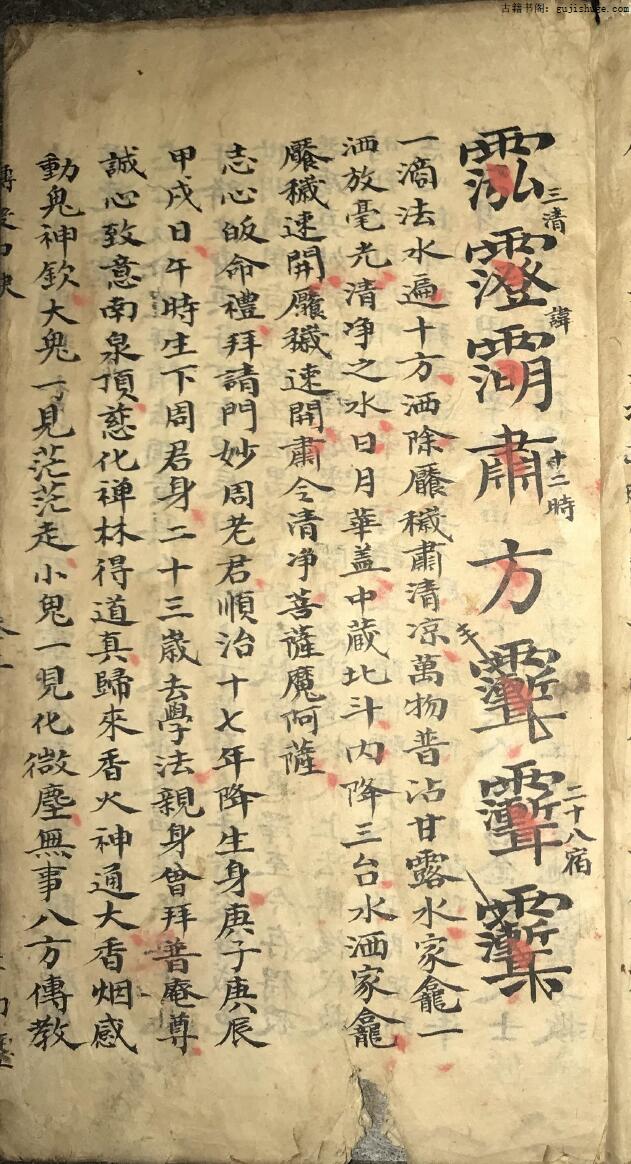 古籍书阁：gujishuge.com
三清
諱
十二時
肅方
二十八宿
一滴法水遍十方洒除厴穢肅清凉萬物普沾甘露水家龕一
洒放毫光清净之水日月華盖中蔵北斗内降三台水洒家龕
厴穢速開厴穢速開肅令清净菩薩魔阿薩
志心皈命禮拜請門妙周老君順治十七年降生身庚子庚辰
甲戌日午時生下周君身二十三歳去學法親身曾拜普庵尊
誠心致意南泉頂慈化禅林得道真歸來香火神通大香烟感
動鬼神欽大鬼一見茫茫走小鬼一見化微塵無事八方傳教